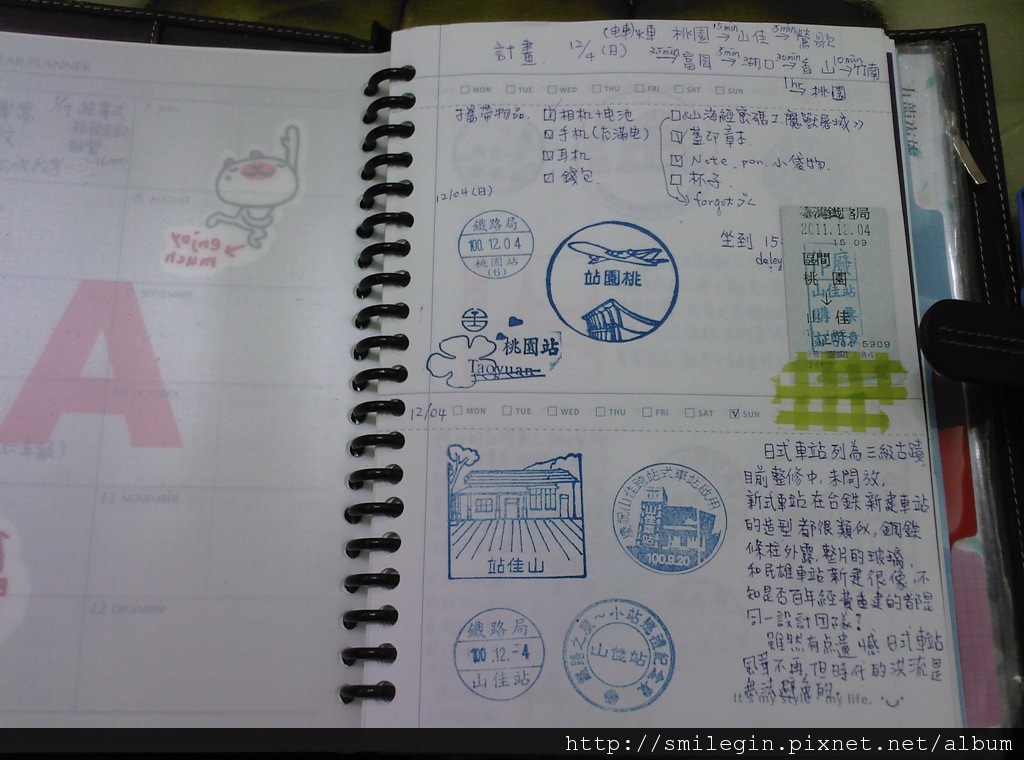 YEAR PLANNER
7 JULY
8 AUGUST
enjoy
much
9 SEPTEMBER
A
10 OCTOBER
11 NOVEMBER
12 DECEMBER
計畫 12/4 (日) 桃園 15min→ 山佳 5min→ 鶯歌
25min→ 富岡 5min→ 湖口 30min→ 香山 10min→ 竹南
1hr→ 桃園
MON TUE WED THU FRI SAT SUN
攜帶物品 相机+電池
手机(充滿电)
耳机
錢包
蓋印章本
Note、pen、小袋物
杯子
forgot
12/04(日)
鐵路局
100.12.04
桃園站
(6)
桃園站
桃園站
Taoyuan
坐到 15
delay
臺灣鐵路局
2011.12.04
15 09
區間
桃園
↓
山佳
山佳站
5909
12/04 MON TUE WED THU FRI SAT SUN
山佳站
100.9.20
鐵路局
100.12.-4
山佳站
山佳站
日式車站列為三級古蹟
目前整修中,未開放,
新式車站在台鉄新建車站
的造型都很類似,鋼鉄
條柱外露,整片的玻璃,
和民雄車站新建很像,不
知是否百年經費重建的都是
同一設計团隊?
雖然有点遺憾日式車站
風華不再,但時代的洪流是
It's my style my life.
http://smilegin.pixnet.net/album